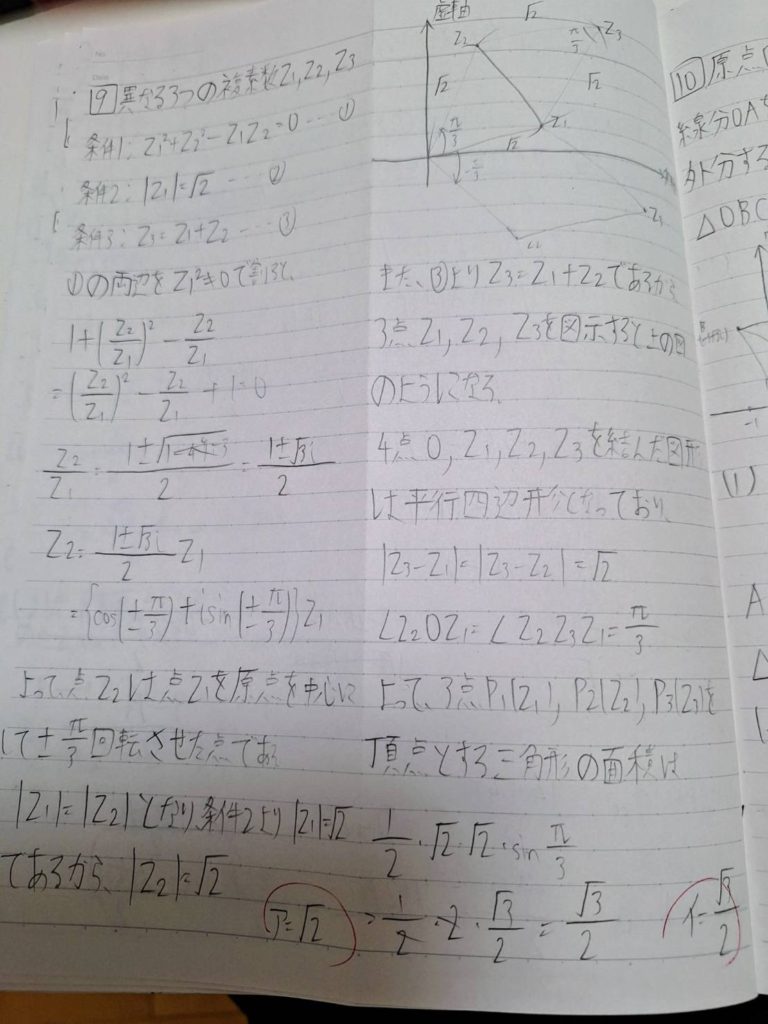 No.
Date
9 異なる3つの複素数Z₁, Z₂, Z₃
条件1: Z₁²+Z₂²-Z₁Z₂=0 … ①
条件2: |Z₁|=√2 … ②
条件3: Z₃=Z₁+Z₂ … ③
①の両辺をZ₁²≠0で割ると、
1+(Z₂/Z₁)²-Z₂/Z₁
=(Z₂/Z₁)²-Z₂/Z₁+1=0
Z₂/Z₁=(1±√3i)/2
Z₂=(1±√3i)/2 Z₁
={cos(±π/3)+isin(±π/3)}Z₁
よって点Z₂は点Z₁を原点を中心に
して±π/3回転させた点である
|Z₁|=|Z₂|となり条件2より|Z₁|=√2
であるから、|Z₂|=√2
ア=√2
虚軸
√2
Z₂
π/3
Z₃
√2
√2
π/3
√2
Z₁
-π/3
Z₃
また、③よりZ₃=Z₁+Z₂であるから
3点Z₁, Z₂, Z₃を図示すると上の図
のようになる。
4点O, Z₁, Z₂, Z₃を結んだ図形
は平行四辺形となっており、
|Z₃-Z₁|=|Z₃-Z₂|=√2
∠Z₂OZ₁=∠Z₂Z₃Z₁=π/3
よって、3点P₁(Z₁), P₂(Z₂), P₃(Z₃)を
頂点とする三角形の面積は
1/2・√2・√2・sin π/3
=1/2・2・√3/2=√3/2
イ=√3/2
10 原点
線分OAを
外分する
△OBC
-1
(1)
A
△